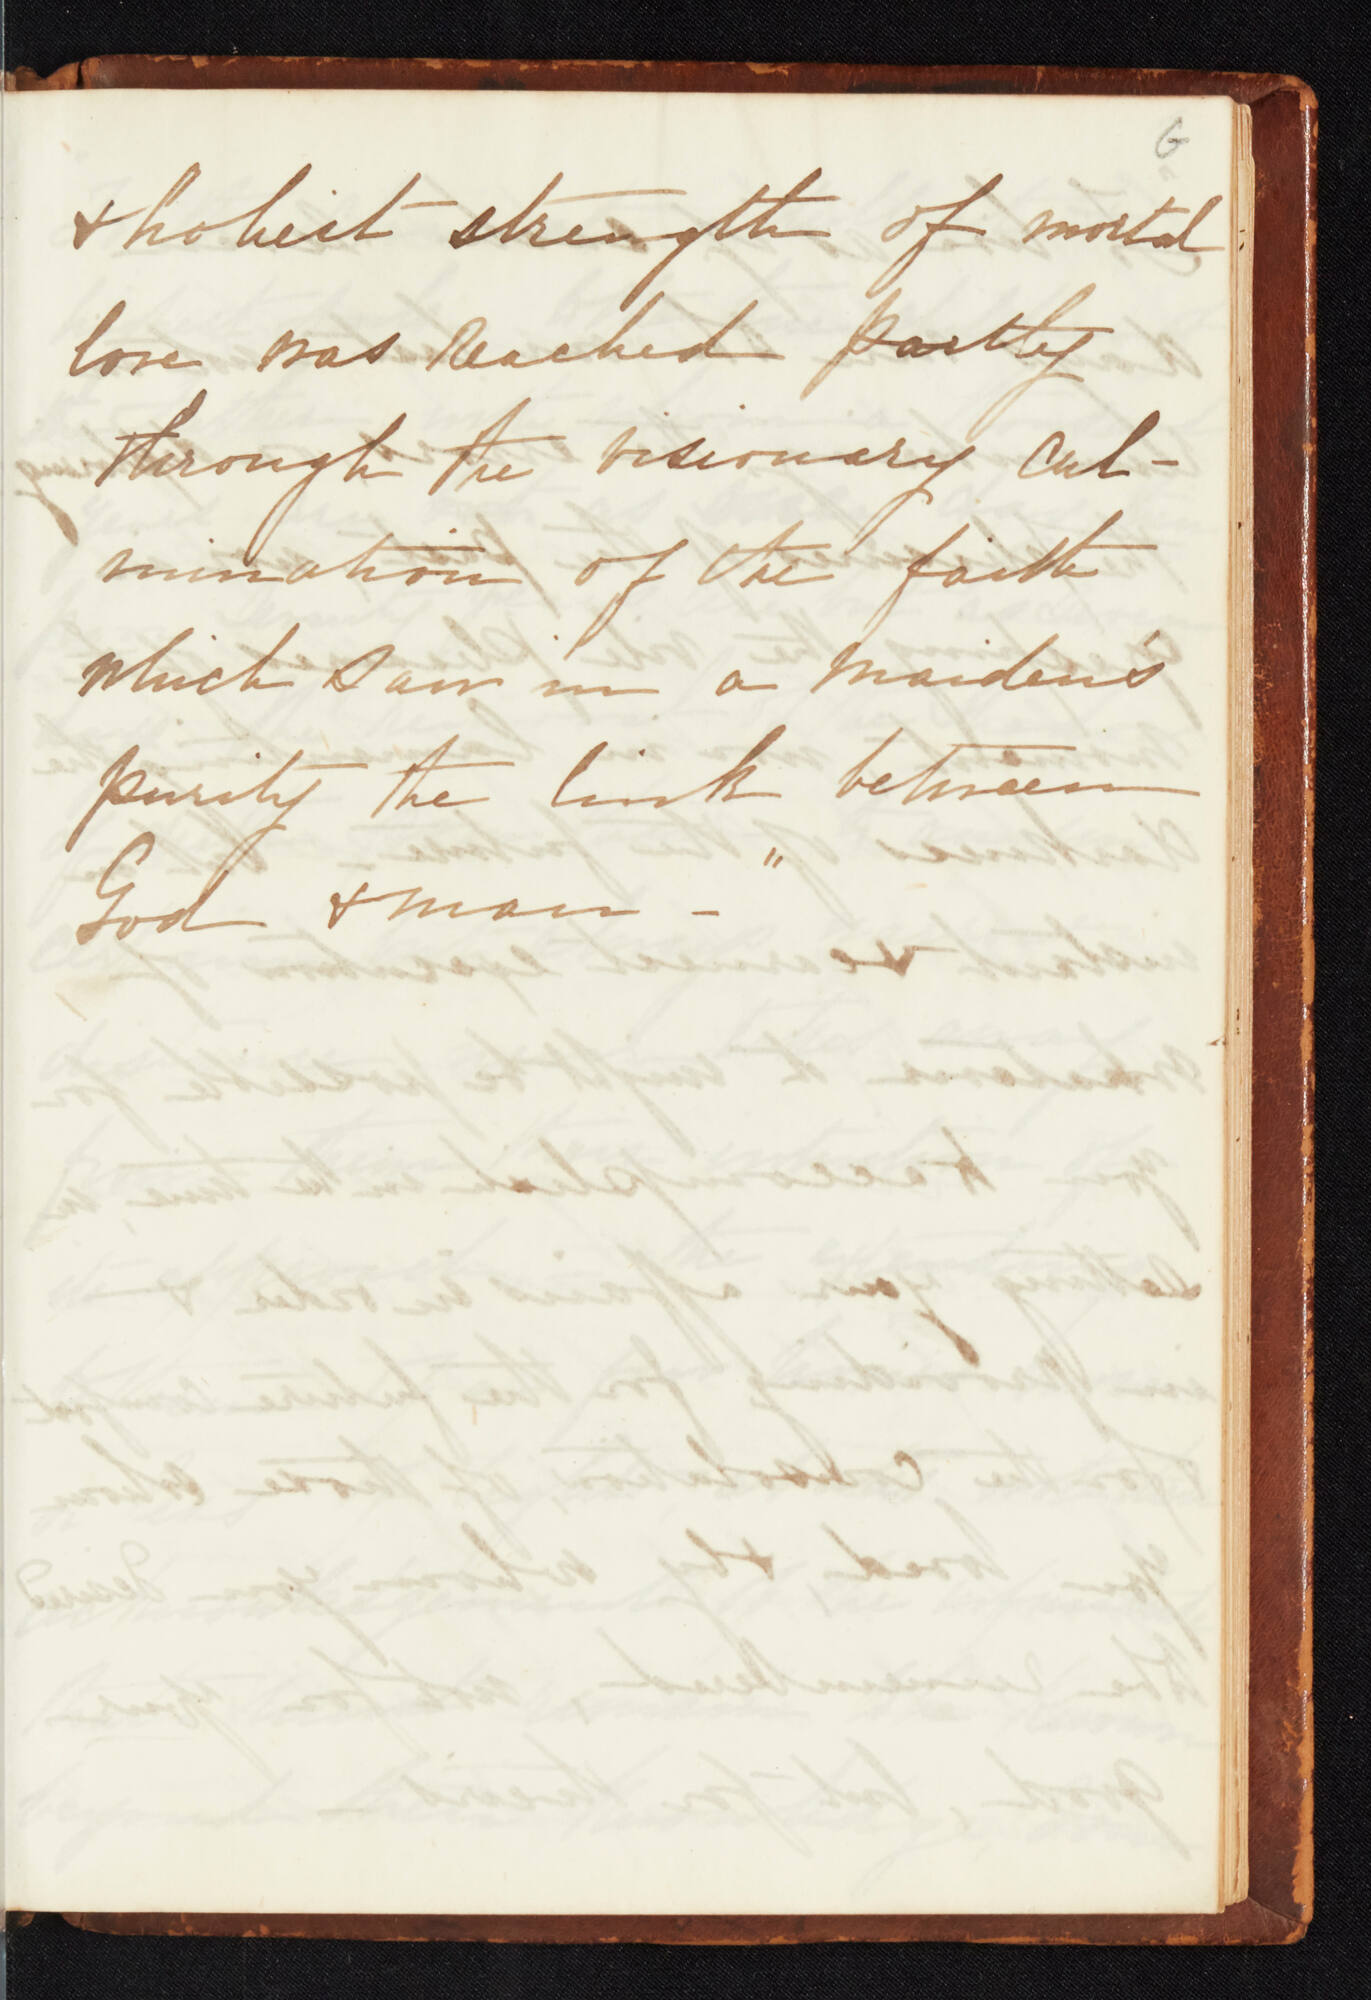 6
& holiest strength of mortal
love was reached partly
through the visionary cul-
mination of the faith
which saw in a maiden's
purity the link between
God & man - "